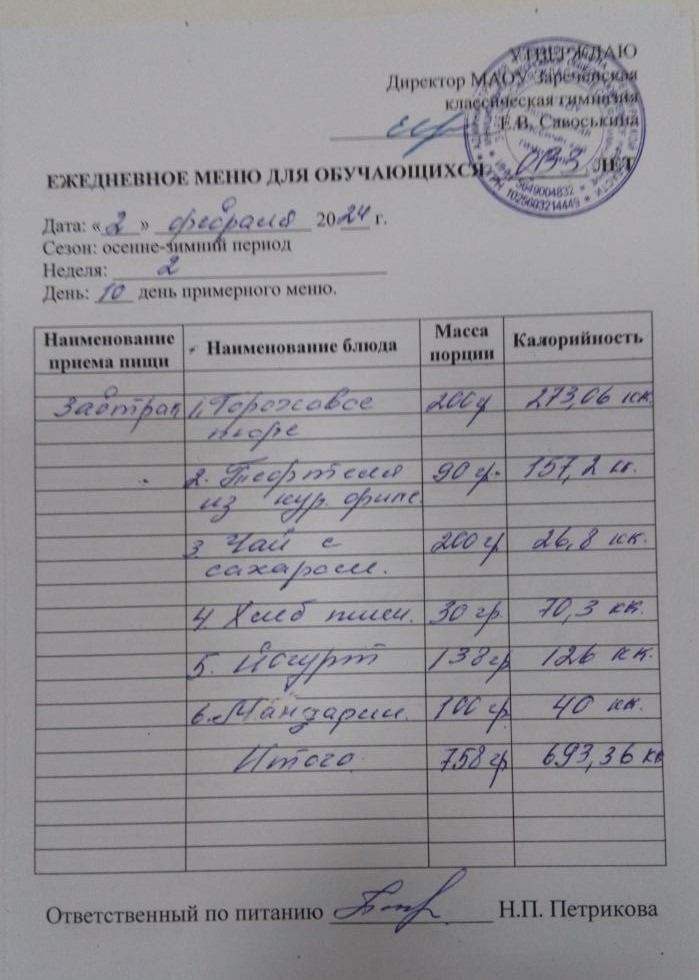 УТВЕРЖДАЮ
Директор МАОУ Зареченская
классическая гимназия
Е.В. Савоськина
ЕЖЕДНЕВНОЕ МЕНЮ ДЛЯ ОБУЧАЮЩИХСЯ ОВЗ ЛЕТ
Дата: «2» февраля 2024 г.
Сезон: осенне-зимний период
Неделя: 2
День: 10 день примерного меню.
Наименование приема пищи Наименование блюда Масса порции Калорийность
Завтрак 1. Гороховое 200 гр 273,06 кк.
пюре
2. Тефтели 90 гр. 157,2 кк.
из кур. филе.
3 Чай с 200 гр 26,8 кк.
сахаром.
4 Хлеб пшен. 30 гр. 70,3 кк.
5. Йогурт 138 гр 126 кк.
6. Мандарин. 100 гр 40 кк.
Итого 758 гр 693,36 кк
Ответственный по питанию Н.П. Петрикова